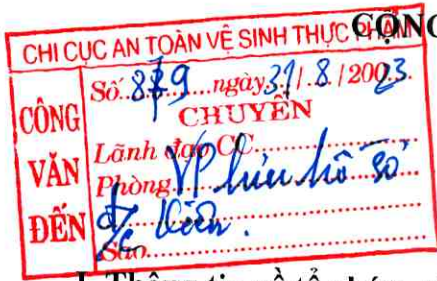 CỘNG
CHI CỤC AN TOÀN VỆ SINH THỰC PHẨM
CÔNG VĂN ĐẾN
Số 879 ngày 31/8/2023
CHUYỂN
Lãnh đạo CC
Phòng VP lưu hồ sơ
đ/c Viên.
Sao
I. Thông tin về tổ chức